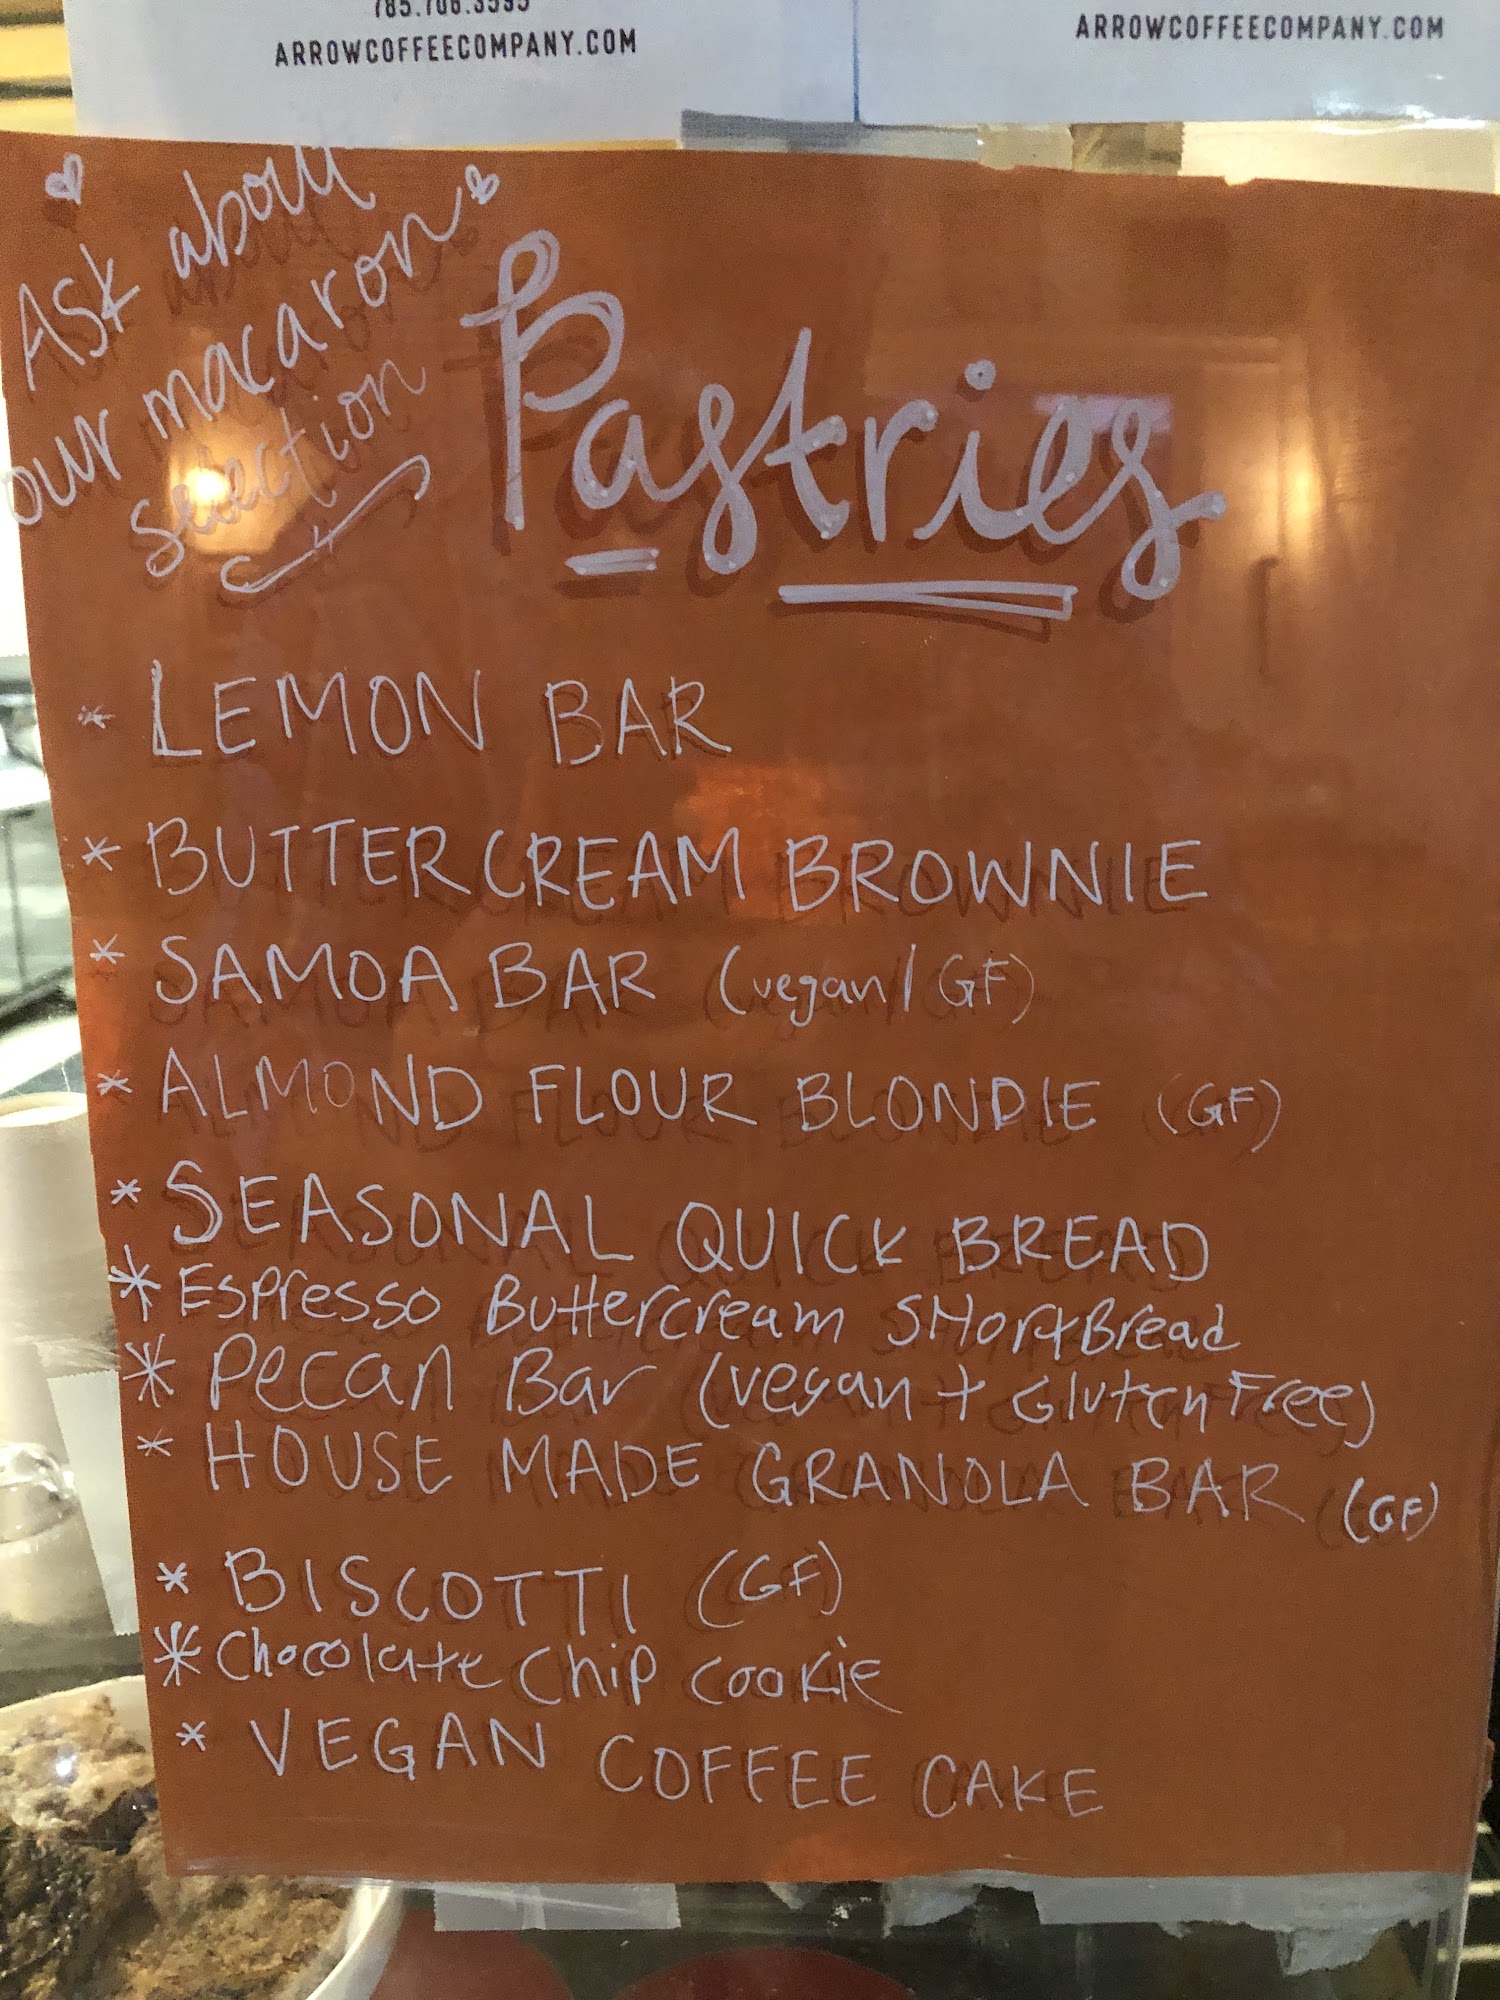 785.706.3595
ARROWCOFFEECOMPANY.COM
ARROWCOFFEECOMPANY.COM
Ask about
our macaron
selection
Pastries
* LEMON BAR
* BUTTERCREAM BROWNIE
* SAMOA BAR (vegan/GF)
* ALMOND FLOUR BLONDIE (GF)
* SEASONAL QUICK BREAD
* Espresso Buttercream SHortBread
* Pecan Bar (vegan + Gluten Free)
* HOUSE MADE GRANOLA BAR (GF)
* BISCOTTI (GF)
* Chocolate Chip Cookie
* VEGAN COFFEE CAKE